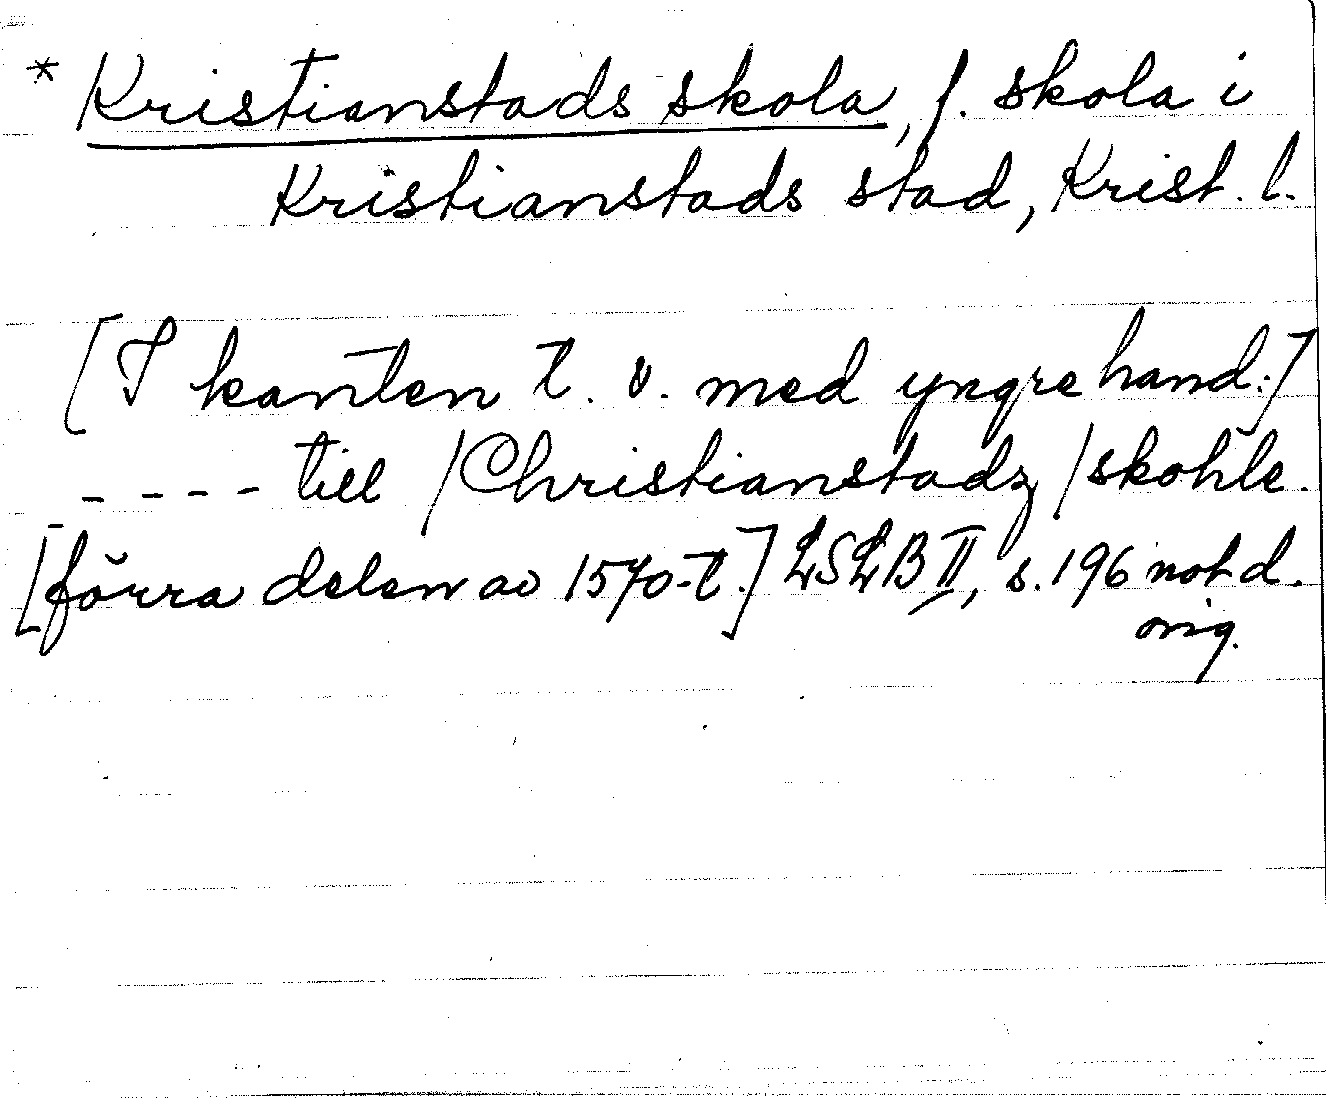 * Kristianstads skola, f. skola i
Kristianstads stad, Krist. l.
[I kanten t. v. med yngre hand:]
---- till /Christianstadz /skohle.
[förra delen av 1570-t.] LSLB II, s. 196 not d.
orig.